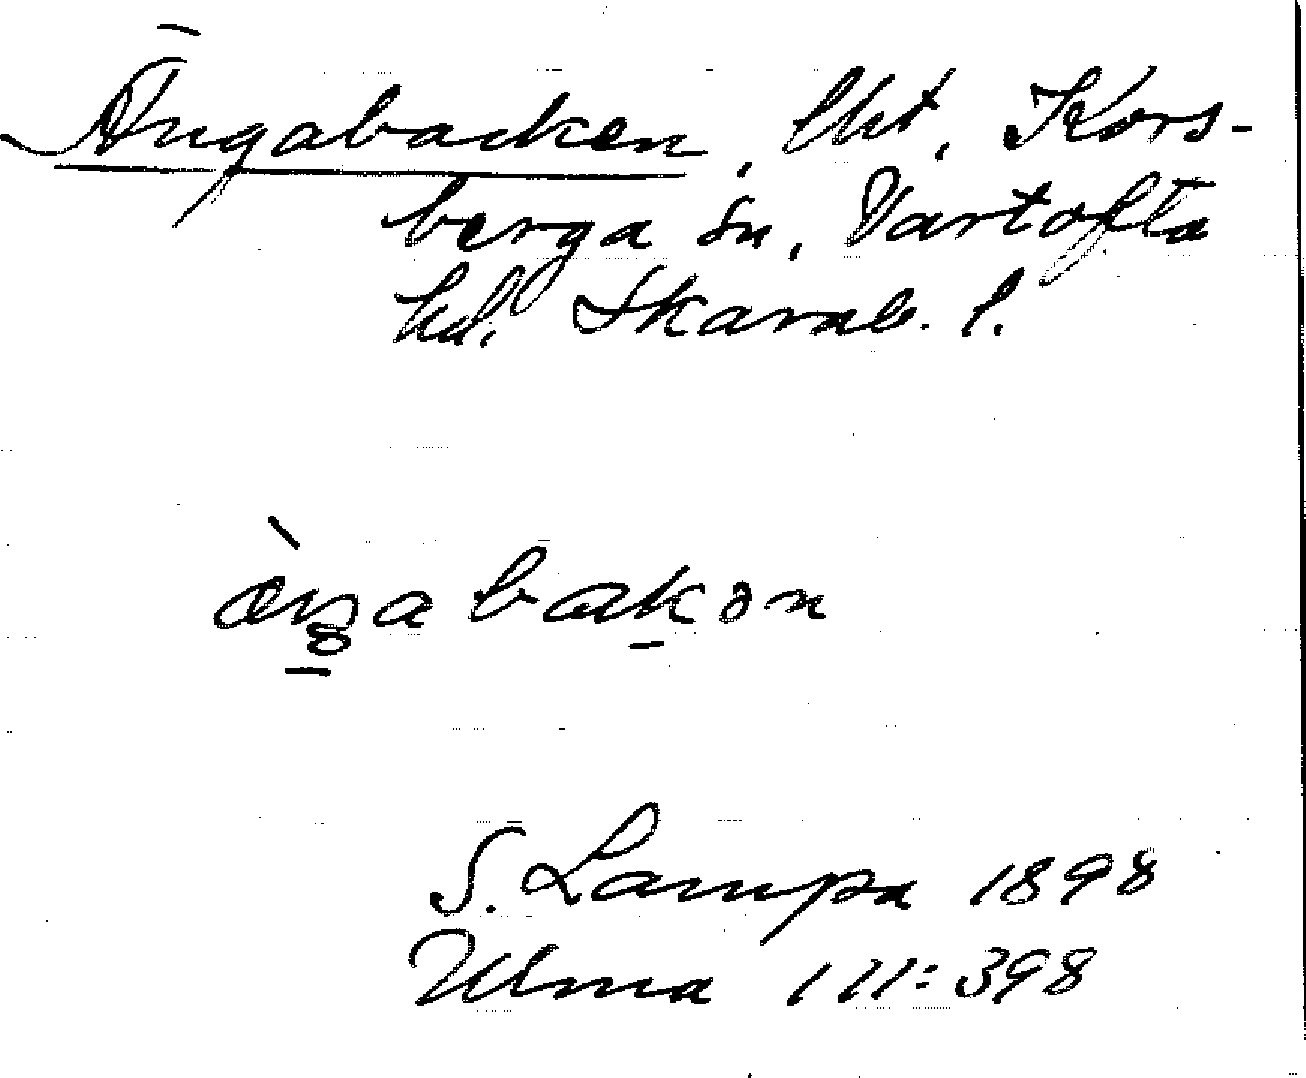 Ängabacken, lht, Kors-
berga sn, Vartofta
hd. Skarab. l.
àŋabakən
S. Lampa 1898
Ulma 111:398